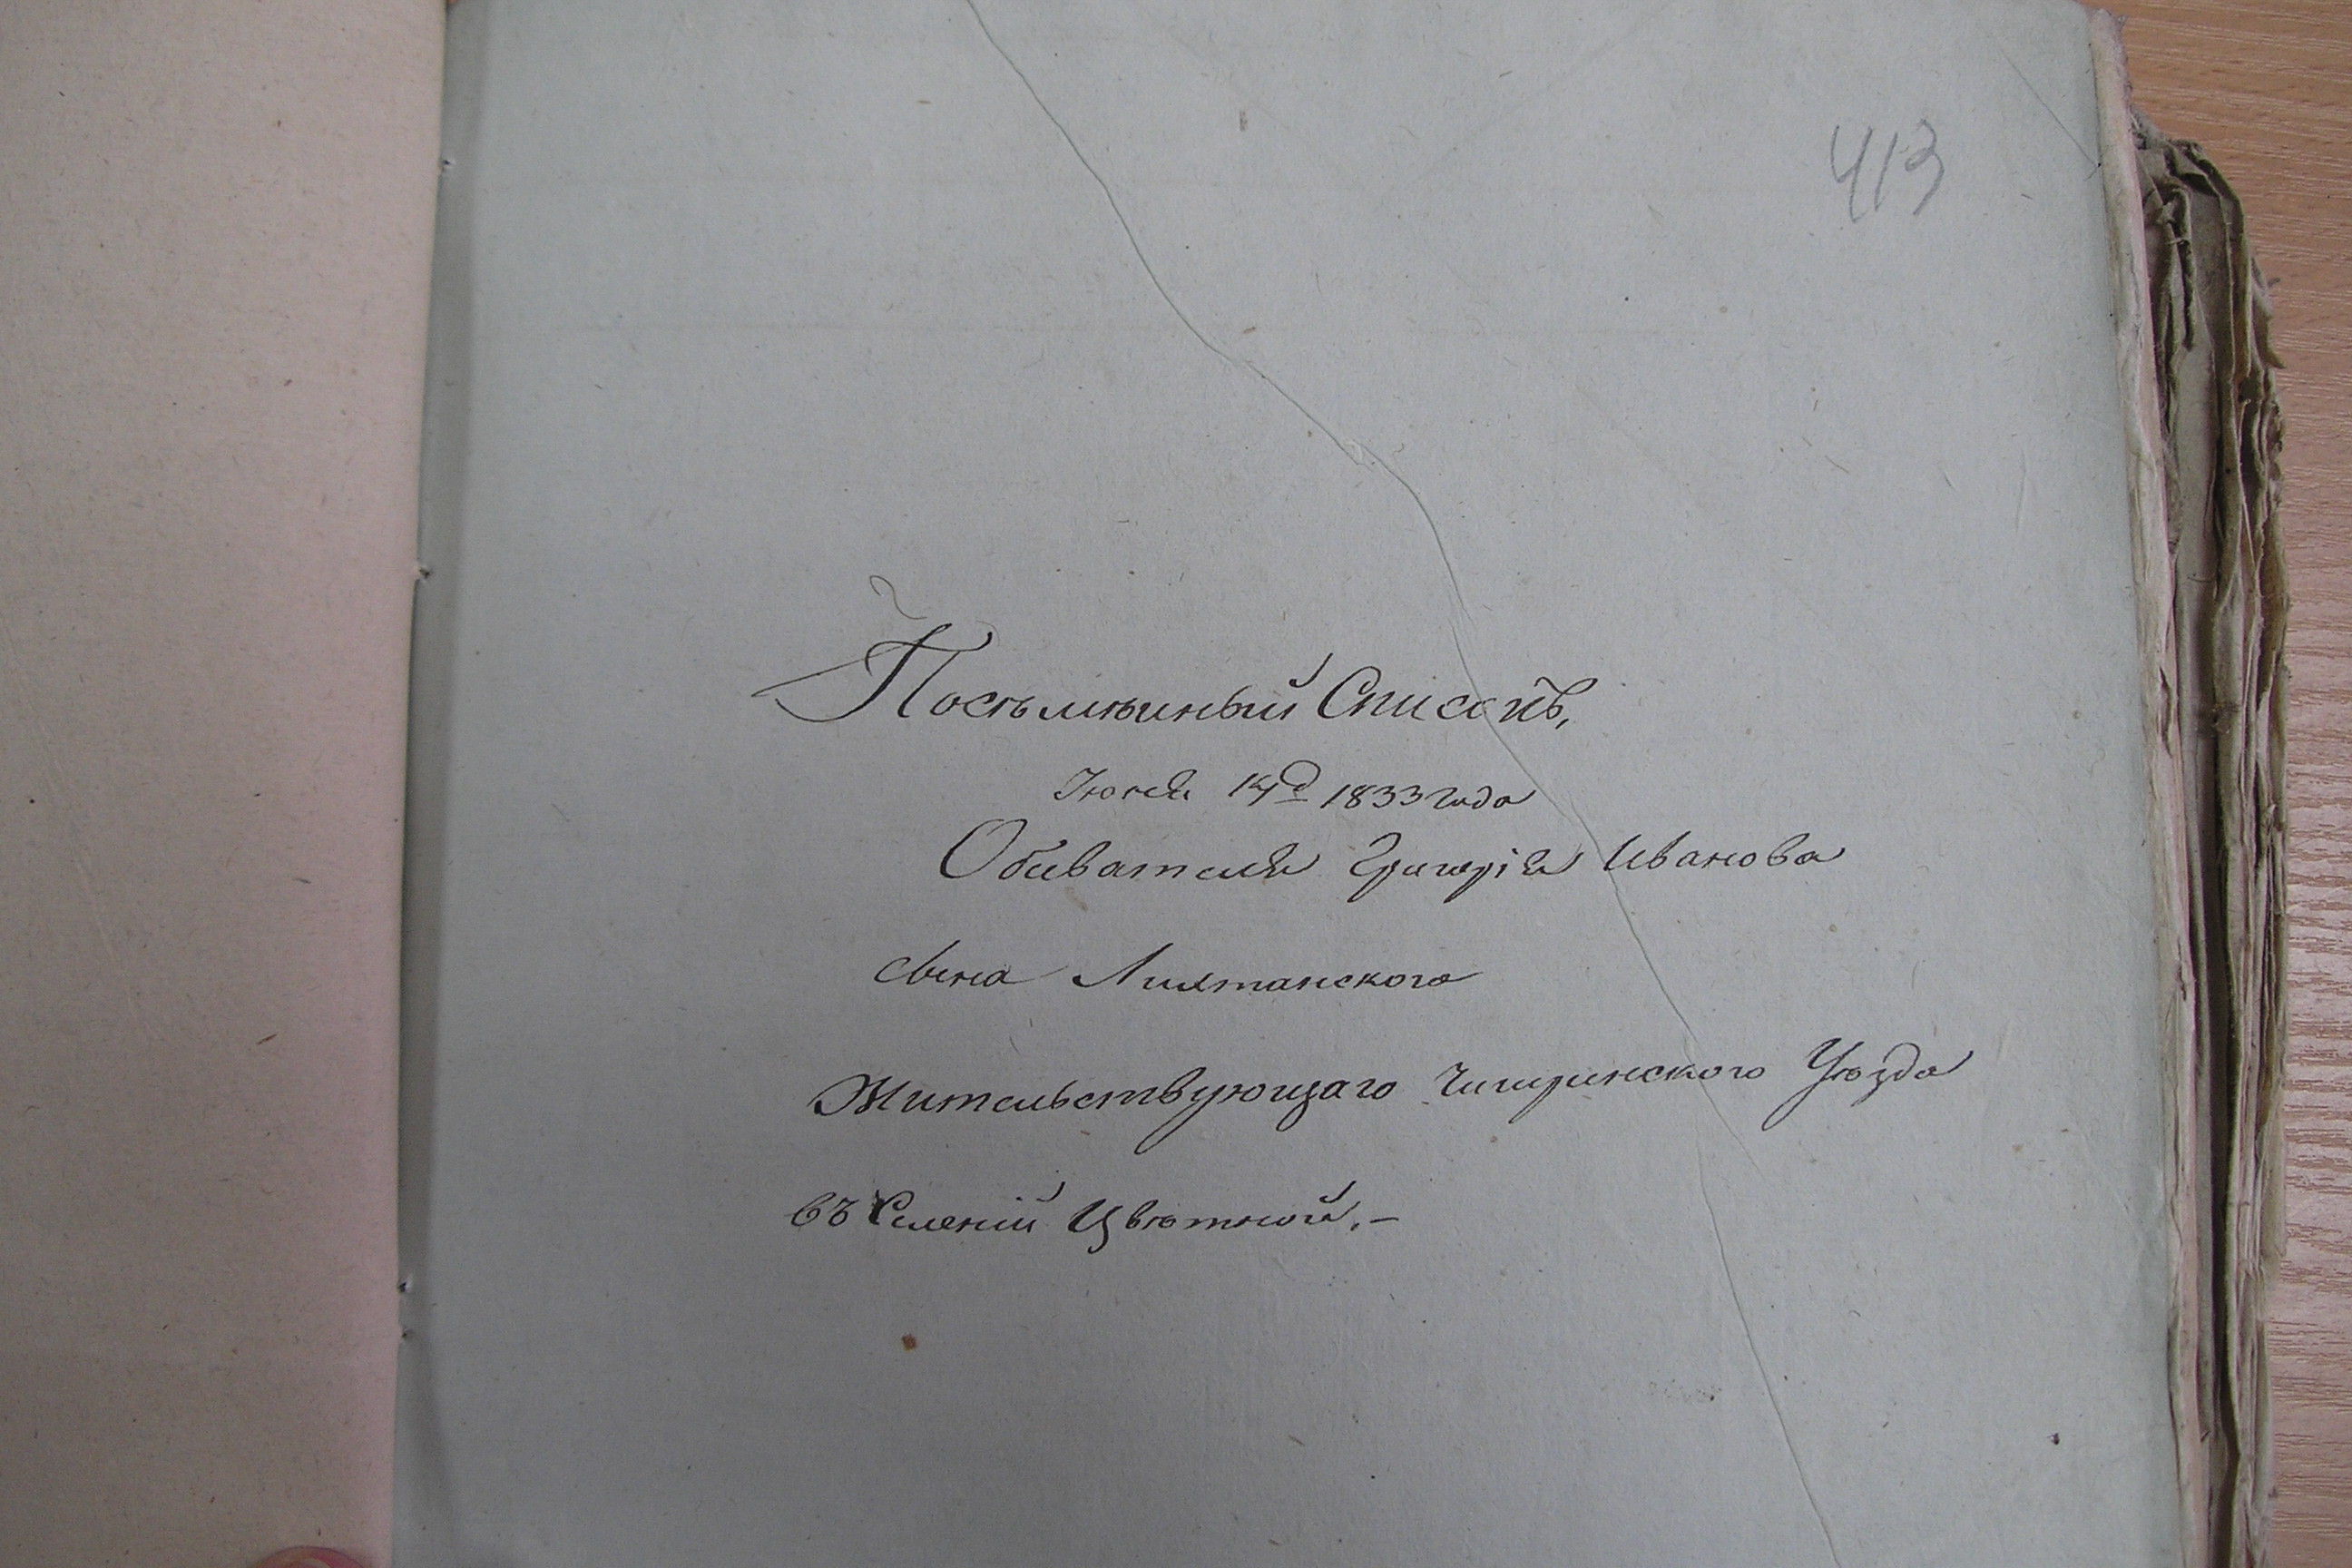 413
Посѣмѣиный Списокъ,
Июня 14д 1833 года
Обивателя Григорія Иванова
сына Лихтанского
Жительствующаго Чигиринского Уѣзда
въ Селеніи Цвѣтной.-